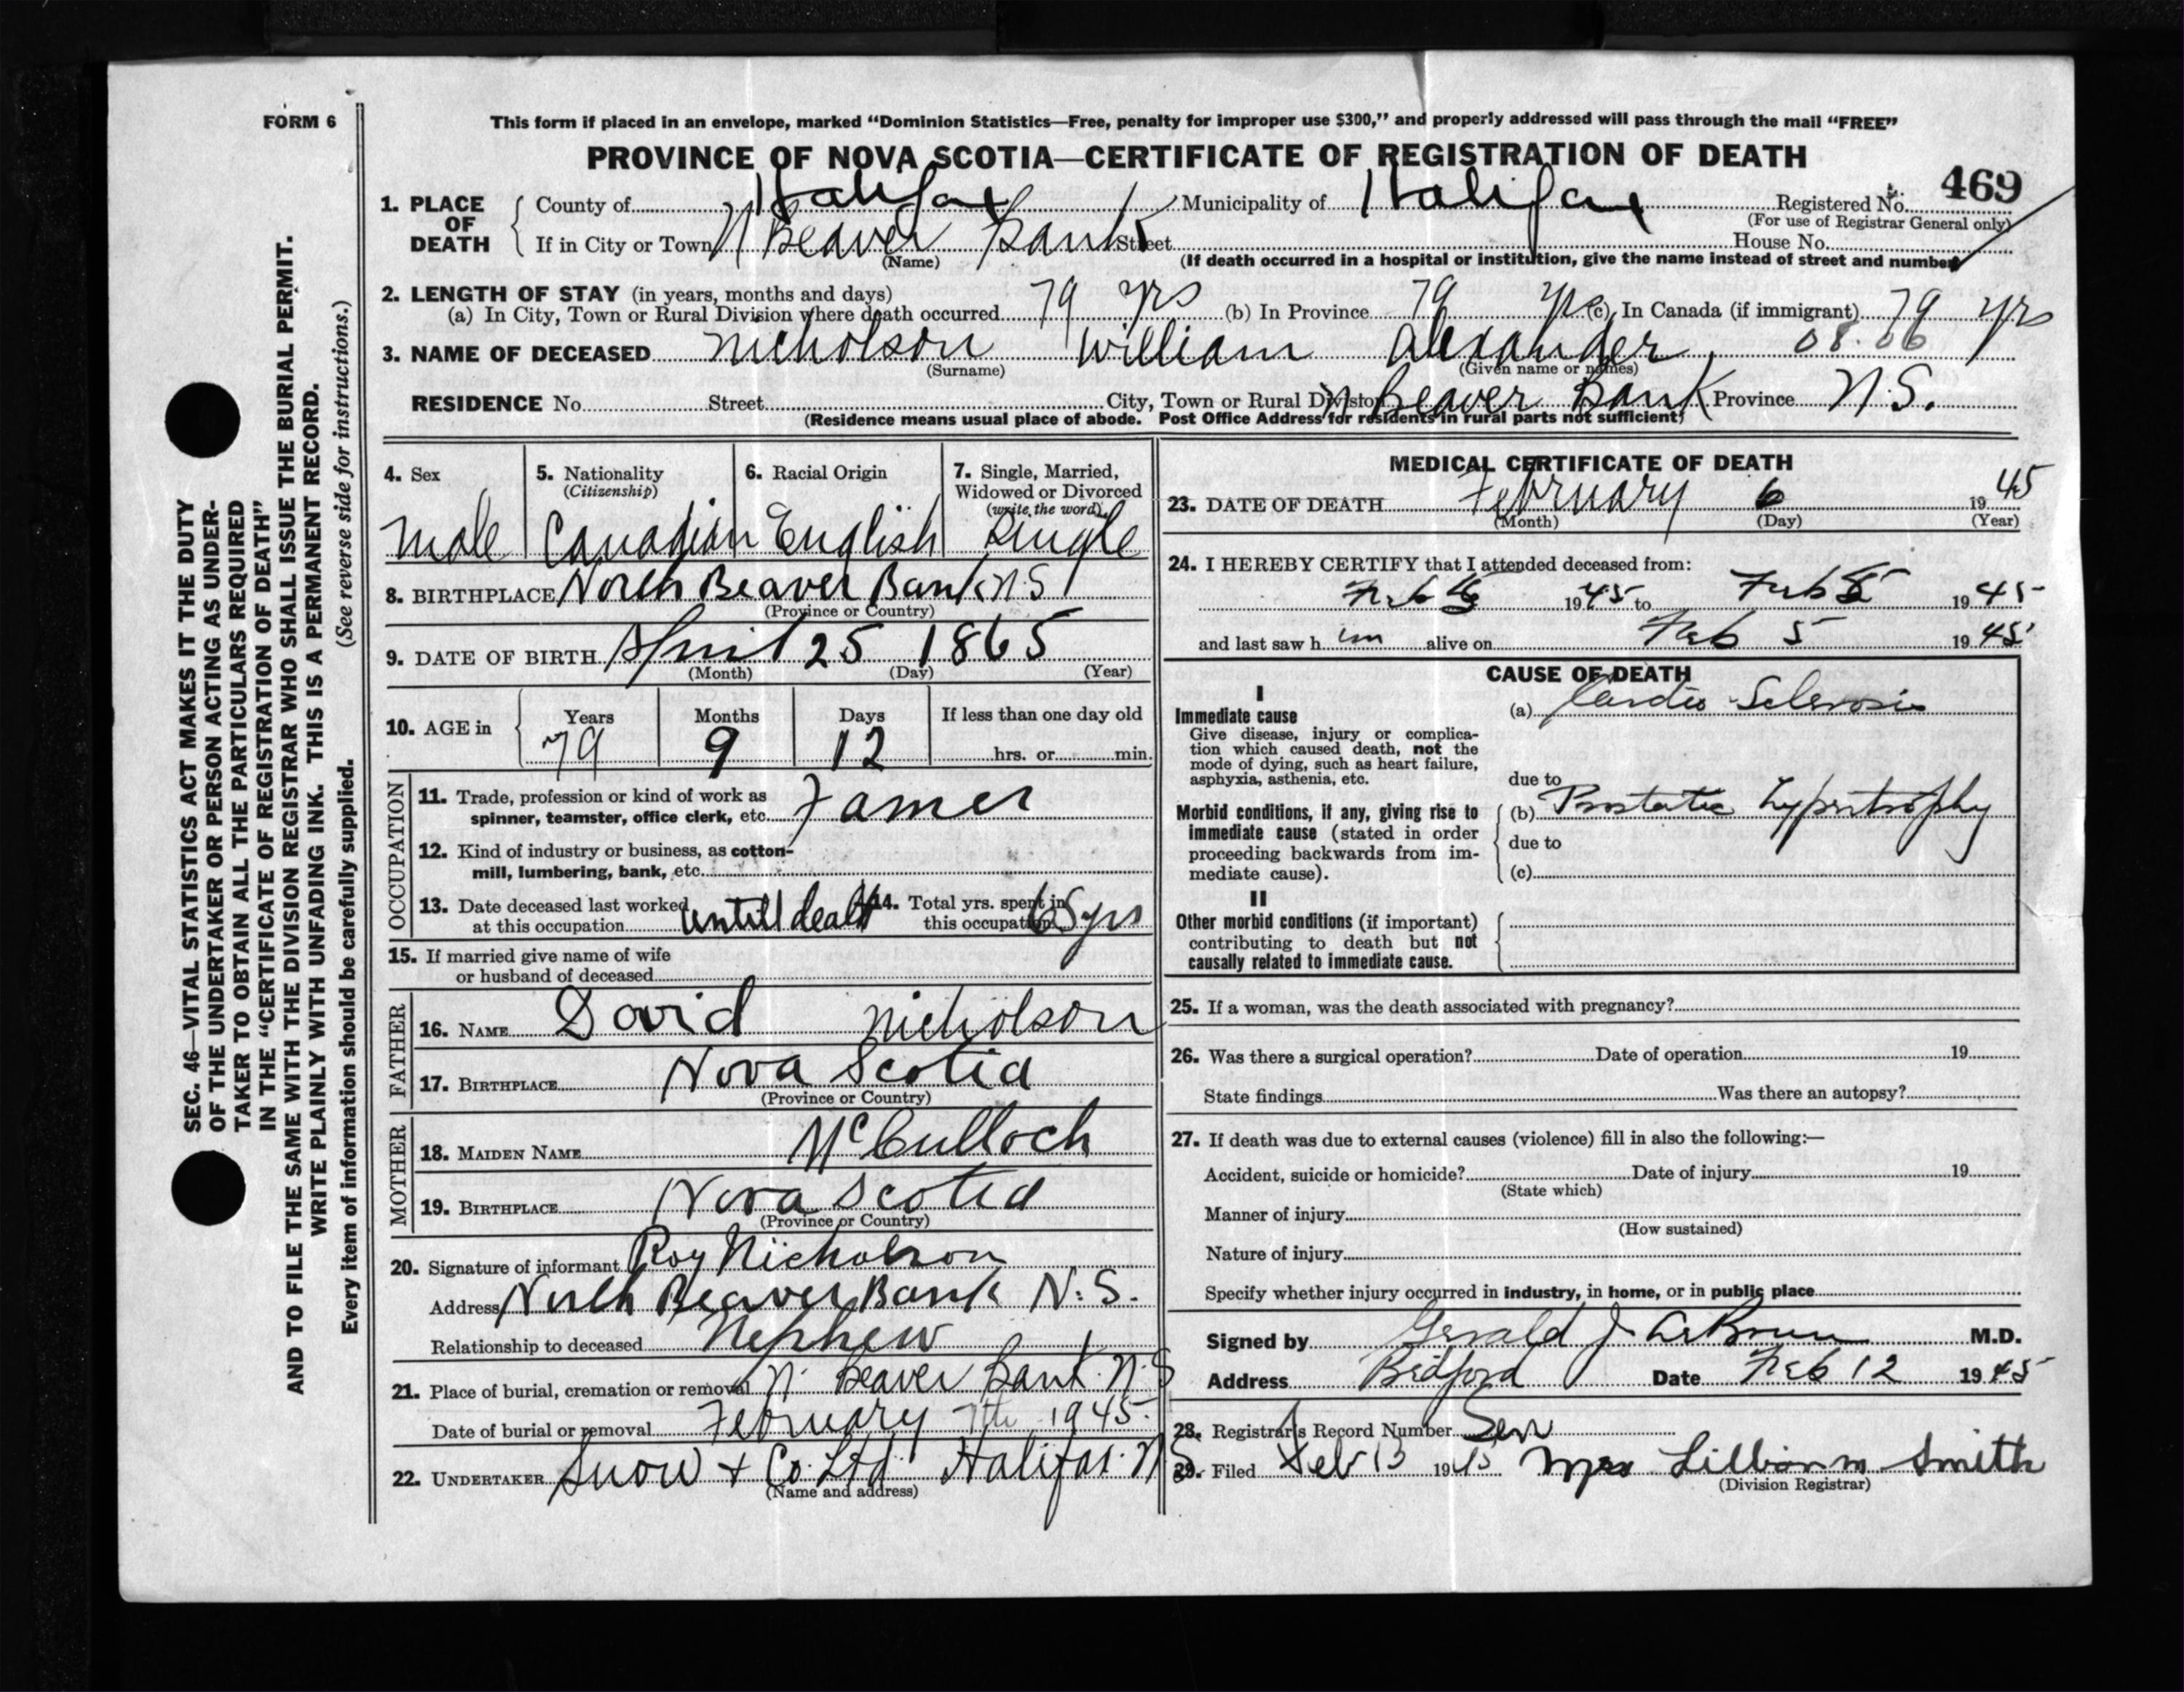 FORM 6
This form if placed in an envelope, marked “Dominion Statistics—Free, penalty for improper use $300,” and properly addressed will pass through the mail “FREE”
PROVINCE OF NOVA SCOTIA—CERTIFICATE OF REGISTRATION OF DEATH
469
1. PLACE OF DEATH County of Halifax Municipality of Halifax Registered No.
(For use of Registrar General only)
If in City or Town N Beaver Bank Street House No.
(Name) (If death occurred in a hospital or institution, give the name instead of street and number)
2. LENGTH OF STAY (in years, months and days)
(a) In City, Town or Rural Division where death occurred 79 yrs (b) In Province 79 yrs (c) In Canada (if immigrant) 79 yrs
3. NAME OF DECEASED Nicholson William Alexander 08.06
(Surname) (Given name or names)
RESIDENCE No. Street City, Town or Rural Division N Beaver Bank Province N.S.
(Residence means usual place of abode. Post Office Address for residents in rural parts not sufficient)
4. Sex 5. Nationality 6. Racial Origin 7. Single, Married,
(Citizenship) Widowed or Divorced
(write the word)
Male Canadian English Single
8. BIRTHPLACE North Beaver Bank N.S
(Province or Country)
9. DATE OF BIRTH April 25 1865
(Month) (Day) (Year)
10. AGE in Years Months Days If less than one day old
79 9 12 hrs. or min.
OCCUPATION
11. Trade, profession or kind of work as
spinner, teamster, office clerk, etc. Famer
12. Kind of industry or business, as cotton-
mill, lumbering, bank, etc.
13. Date deceased last worked at this occupation untill death 14. Total yrs. spent in this occupation 65 yrs
15. If married give name of wife
or husband of deceased
FATHER
16. NAME David Nicholson
17. BIRTHPLACE Nova Scotia
(Province or Country)
MOTHER
18. MAIDEN NAME McCulloch
19. BIRTHPLACE Nova Scotia
(Province or Country)
20. Signature of informant Roy Nicholson
Address North Beaver Bank N.S.
Relationship to deceased Nephew
21. Place of burial, cremation or removal N. Beaver Bank. N.S
Date of burial or removal February 7th 1945.
22. UNDERTAKER Snow + Co. Ltd. Halifax. N.S
(Name and address)
MEDICAL CERTIFICATE OF DEATH
23. DATE OF DEATH February 6 1945
(Month) (Day) (Year)
24. I HEREBY CERTIFY that I attended deceased from:
Feb 1945 to Feb 5 1945
and last saw him alive on Feb 5 1945
CAUSE OF DEATH
I
Immediate cause (a) Cardio Sclerosis
Give disease, injury or complica-
tion which caused death, not the
mode of dying, such as heart failure,
asphyxia, asthenia, etc. due to
Morbid conditions, if any, giving rise to (b) Prostatic hypertrophy
immediate cause (stated in order
proceeding backwards from im- due to
mediate cause). (c)
II
Other morbid conditions (if important)
contributing to death but not
causally related to immediate cause.
25. If a woman, was the death associated with pregnancy?
26. Was there a surgical operation? Date of operation 19
State findings Was there an autopsy?
27. If death was due to external causes (violence) fill in also the following:—
Accident, suicide or homicide? Date of injury 19
(State which)
Manner of injury
(How sustained)
Nature of injury
Specify whether injury occurred in industry, in home, or in public place
Signed by Gerald J. LeBrun M.D.
Address Bedford Date Feb 12 1945
28. Registrar's Record Number
29. Filed Feb 13 1945 Mrs Lillian M Smith
(Division Registrar)
SEC. 46—VITAL STATISTICS ACT MAKES IT THE DUTY
OF THE UNDERTAKER OR PERSON ACTING AS UNDER-
TAKER TO OBTAIN ALL THE PARTICULARS REQUIRED
IN THE “CERTIFICATE OF REGISTRATION OF DEATH”
AND TO FILE THE SAME WITH THE DIVISION REGISTRAR WHO SHALL ISSUE THE BURIAL PERMIT.
WRITE PLAINLY WITH UNFADING INK. THIS IS A PERMANENT RECORD.
Every item of information should be carefully supplied. (See reverse side for instructions.)